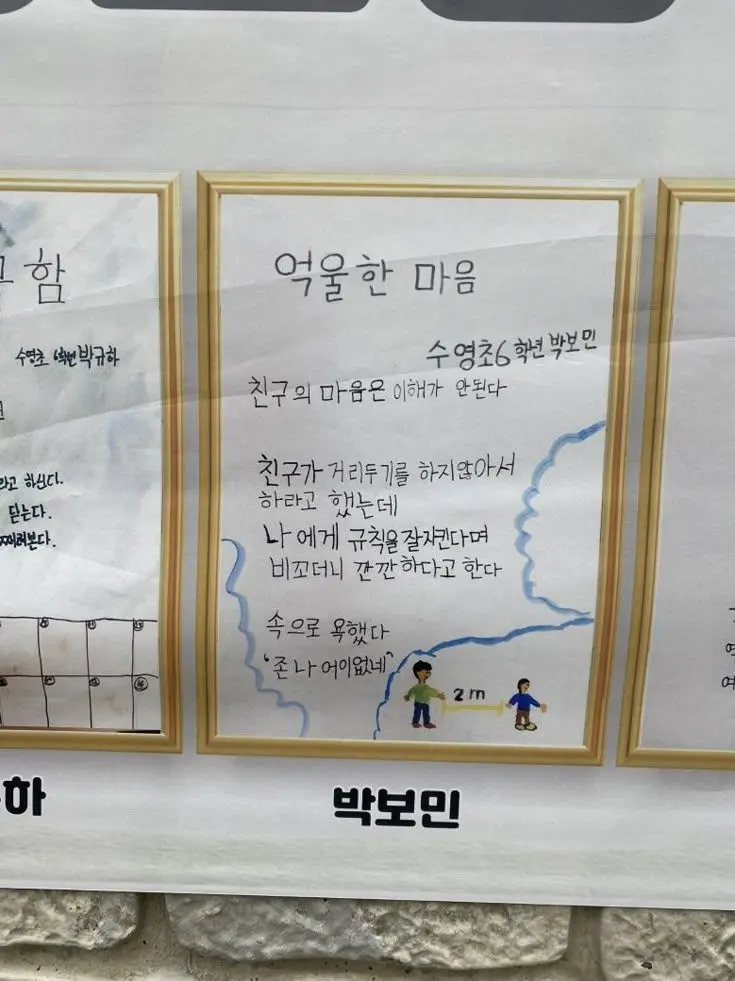 함
수영초 6학년 박규하
라고 하신다.
닫는다.
째려본다.
하
억울한 마음
수영초6학년 박보민
친구의 마음은 이해가 안된다
친구가 거리두기를 하지않아서
하라고 했는데
나에게 규칙을잘지킨다며
비꼬더니 깐깐하다고 한다
속으로 욕했다
'존나 어이없네'
2m
박보민